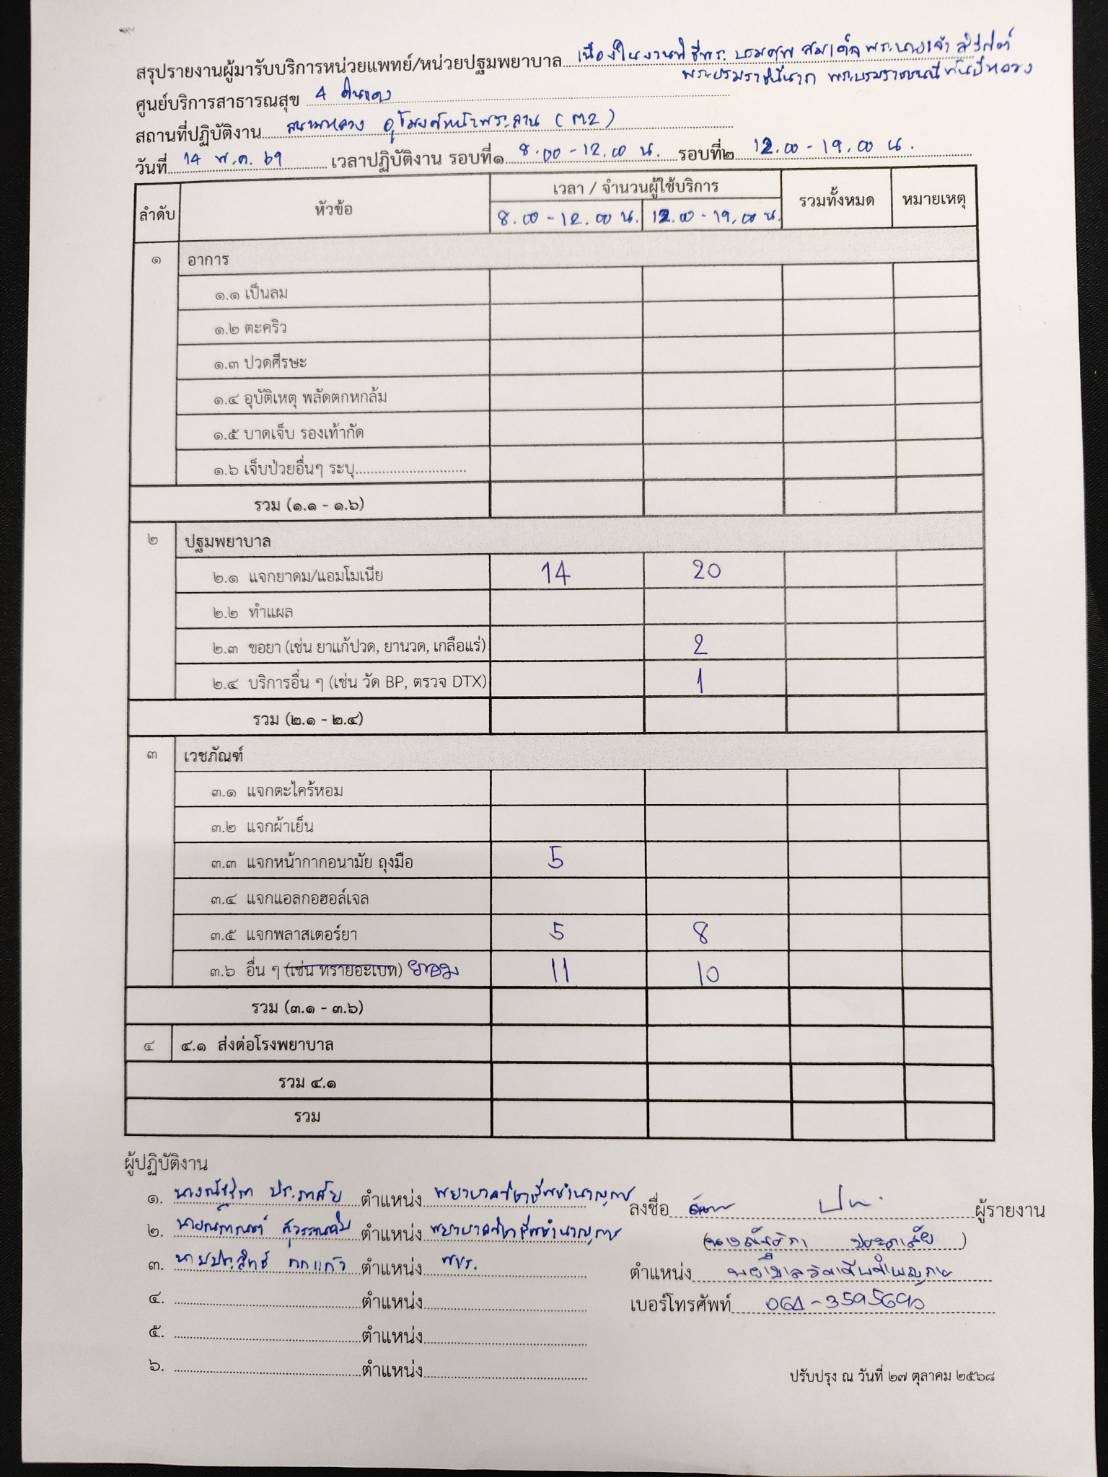 สรุปรายงานผู้มารับบริการหน่วยแพทย์/หน่วยปฐมพยาบาล เนื่องในงานพิธีพระบรมศพ สมเด็จพระนางเจ้าสิริกิติ์
พระบรมราชินีนาถ พระบรมราชชนนีพันปีหลวง
ศูนย์บริการสาธารณสุข 4 ดินแดง
สถานที่ปฏิบัติงาน สนามหลวง อุโมงค์หน้าพระลาน (M2)
วันที่ 14 พ.ค. 69 เวลาปฏิบัติงาน รอบที่๑ 8.00-12.00 น. รอบที่๒ 12.00-19.00 น.
ลำดับ หัวข้อ เวลา / จำนวนผู้ใช้บริการ รวมทั้งหมด หมายเหตุ
8.00-12.00 น. 12.00-19.00 น.
๑ อาการ
๑.๑ เป็นลม
๑.๒ ตะคริว
๑.๓ ปวดศีรษะ
๑.๔ อุบัติเหตุ พลัดตกหกล้ม
๑.๕ บาดเจ็บ รองเท้ากัด
๑.๖ เจ็บป่วยอื่นๆ ระบุ............................
รวม (๑.๑ - ๑.๖)
๒ ปฐมพยาบาล
๒.๑ แจกยาดม/แอมโมเนีย 14 20
๒.๒ ทำแผล
๒.๓ ขอยา (เช่น ยาแก้ปวด, ยานวด, เกลือแร่) 2
๒.๔ บริการอื่น ๆ (เช่น วัด BP, ตรวจ DTX) 1
รวม (๒.๑ - ๒.๔)
๓ เวชภัณฑ์
๓.๑ แจกตะไคร้หอม
๓.๒ แจกผ้าเย็น
๓.๓ แจกหน้ากากอนามัย ถุงมือ 5
๓.๔ แจกแอลกอฮอล์เจล
๓.๕ แจกพลาสเตอร์ยา 5 8
๓.๖ อื่น ๆ (เช่น ทรายอะเบท) 11 10
รวม (๓.๑ - ๓.๖)
๔ ๔.๑ ส่งต่อโรงพยาบาล
รวม ๔.๑
รวม
ผู้ปฏิบัติงาน
๑. ตำแหน่ง พยาบาลวิชาชีพชำนาญการ
๒. ตำแหน่ง พยาบาลวิชาชีพชำนาญการ
๓. ตำแหน่ง พขร.
๔. ตำแหน่ง
๕. ตำแหน่ง
๖. ตำแหน่ง
ลงชื่อ ผู้รายงาน
ตำแหน่ง พยาบาลวิชาชีพชำนาญการ
เบอร์โทรศัพท์ 064-3595690
ปรับปรุง ณ วันที่ ๒๗ ตุลาคม ๒๕๖๘